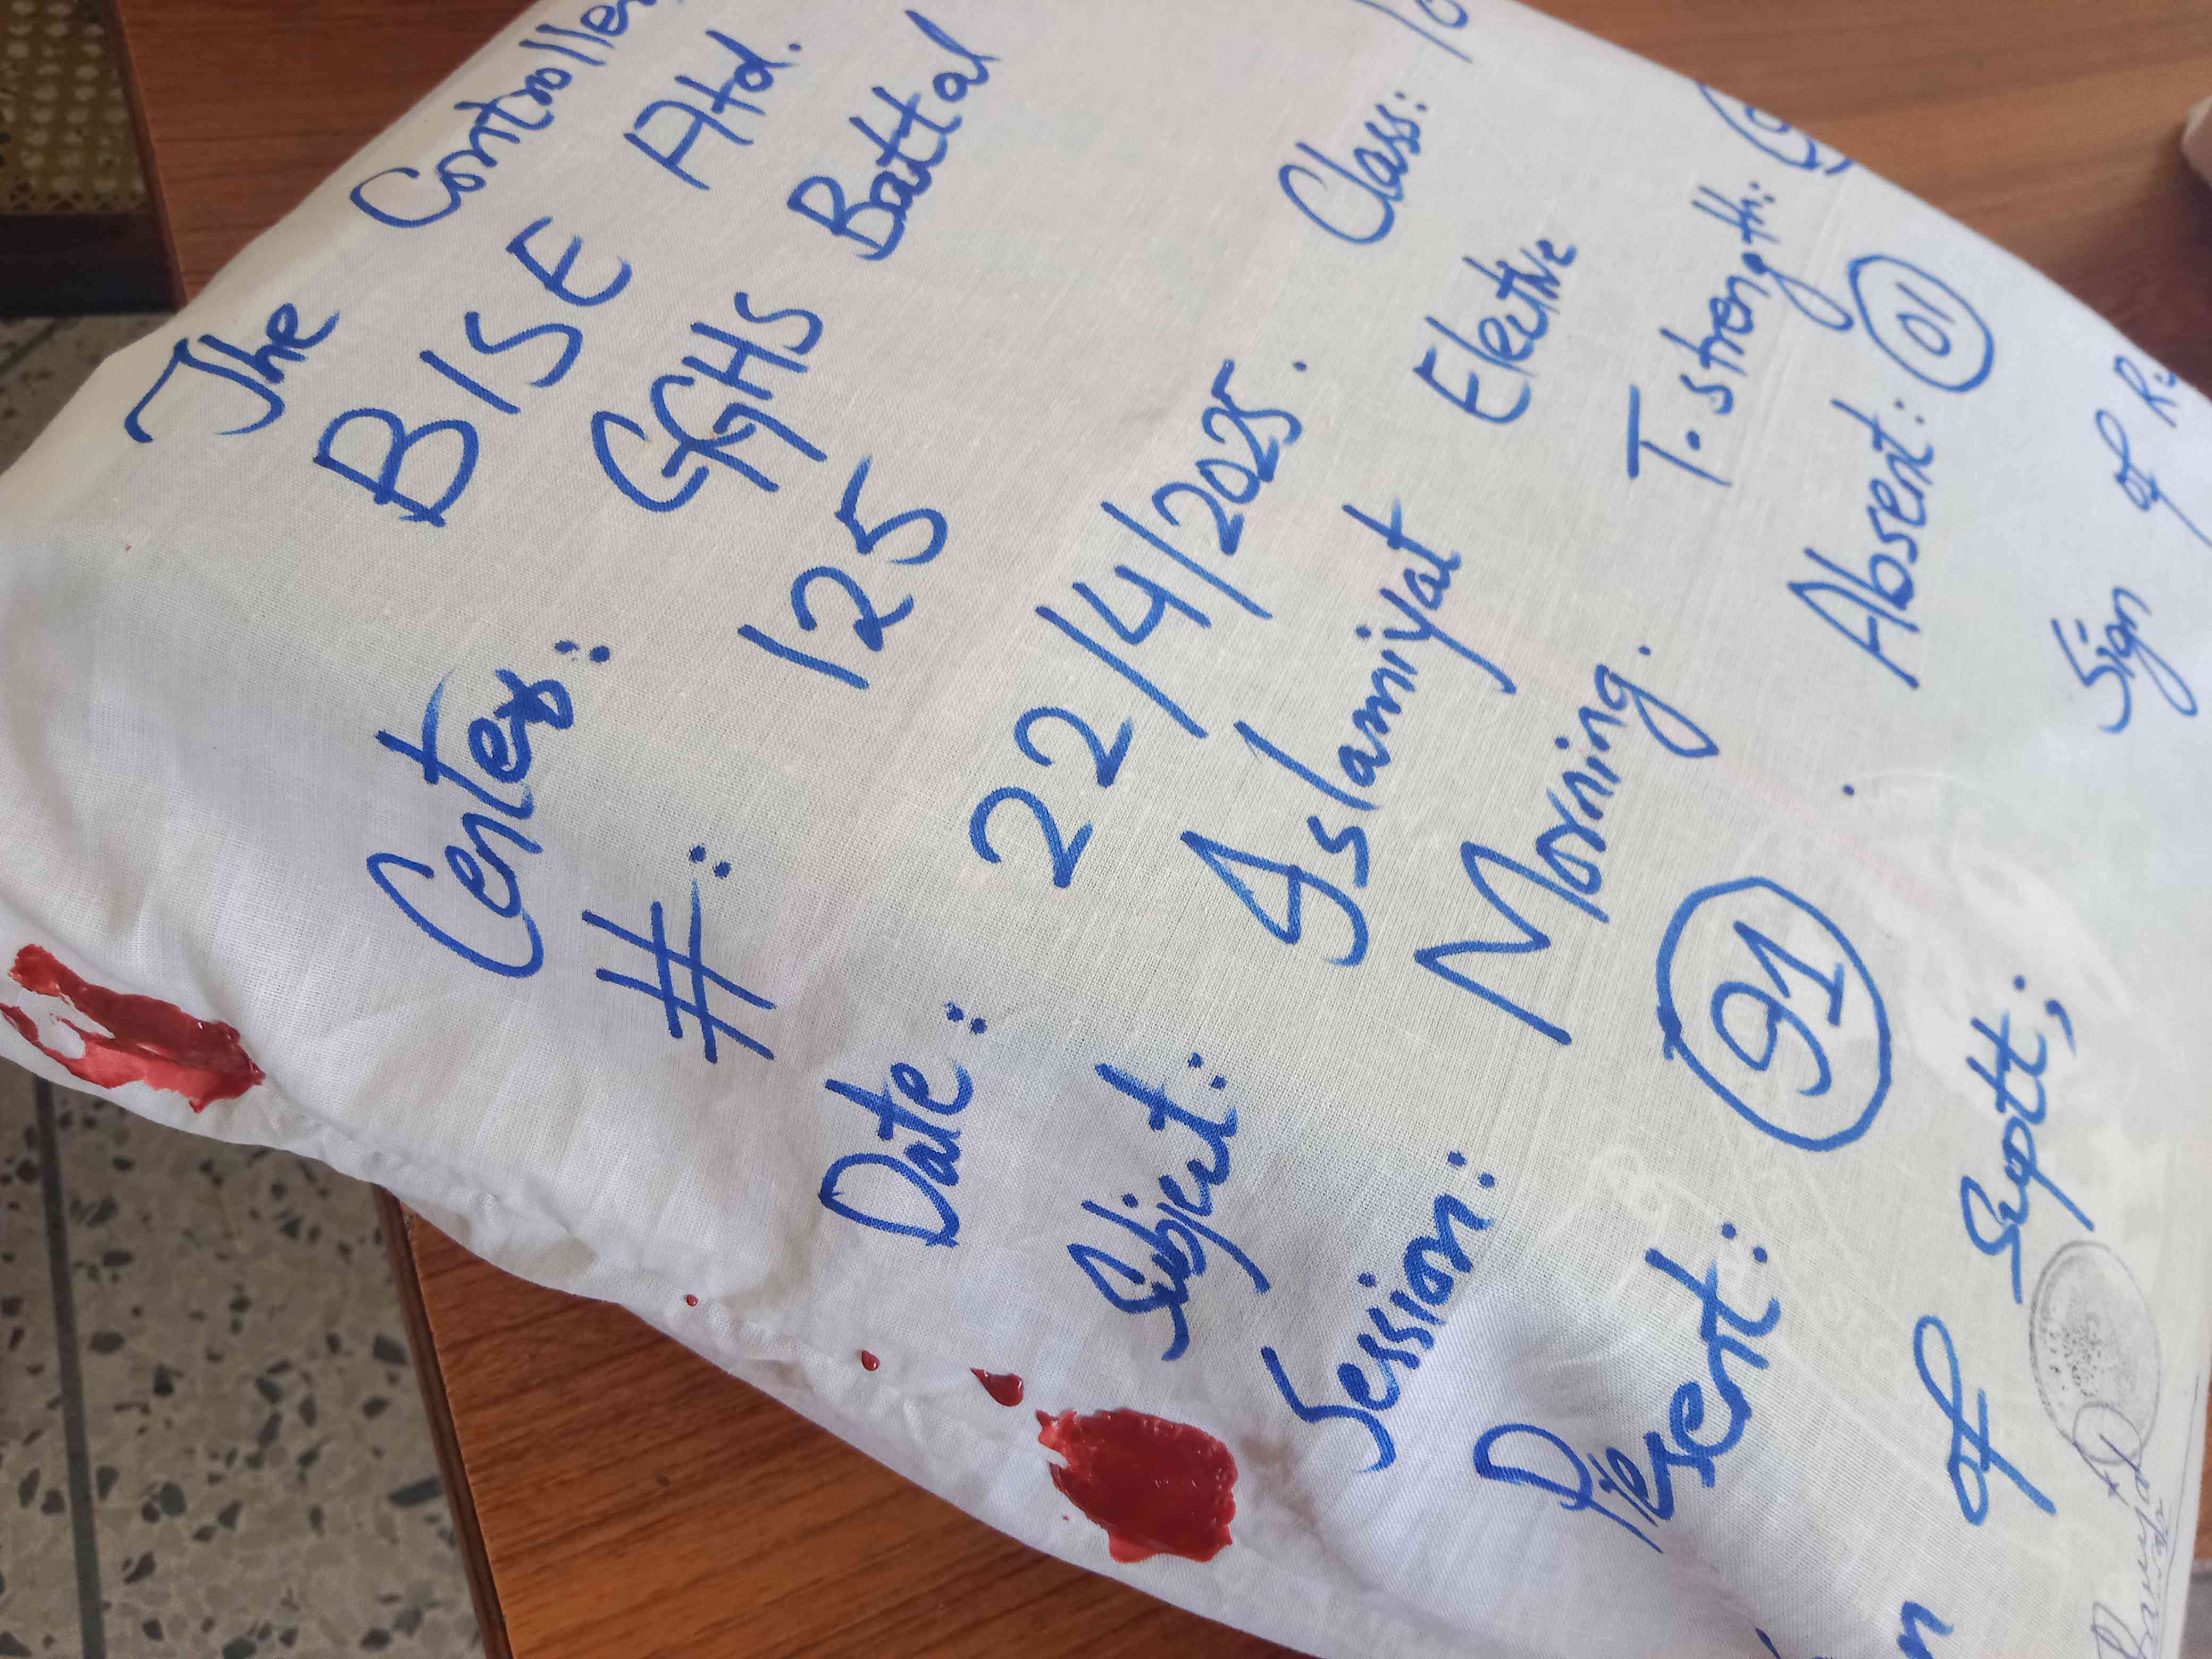 The Controller
BISE Atd.
Center: GGHS Battal
#: 125
Date: 22/4/2025. Class: 10
Subject: Islamiyat Elective
Session: Morning. T. strength:
Present: 91 Absent: 01
of Suptt; Sign of